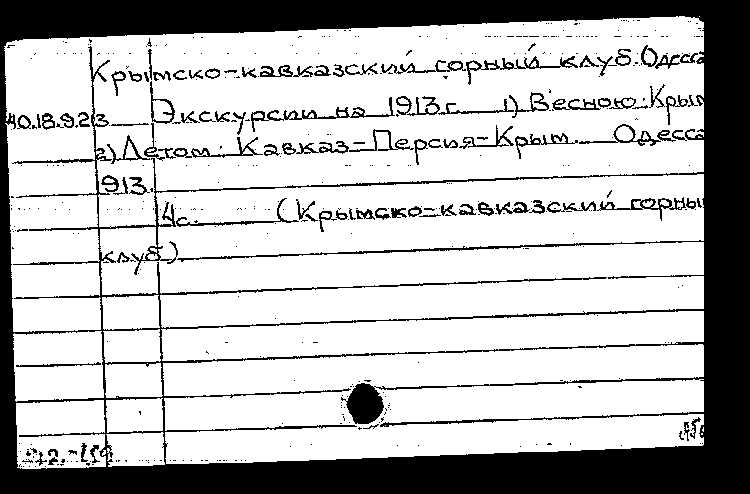 Крымско-кавказский горный клуб. Одесса
Экскурсии на 1913 г. 1) Весною: Крым
2) Летом: Кавказ-Персия-Крым. Одесса
1913.
4 с. (Крымско-кавказский горный
клуб)